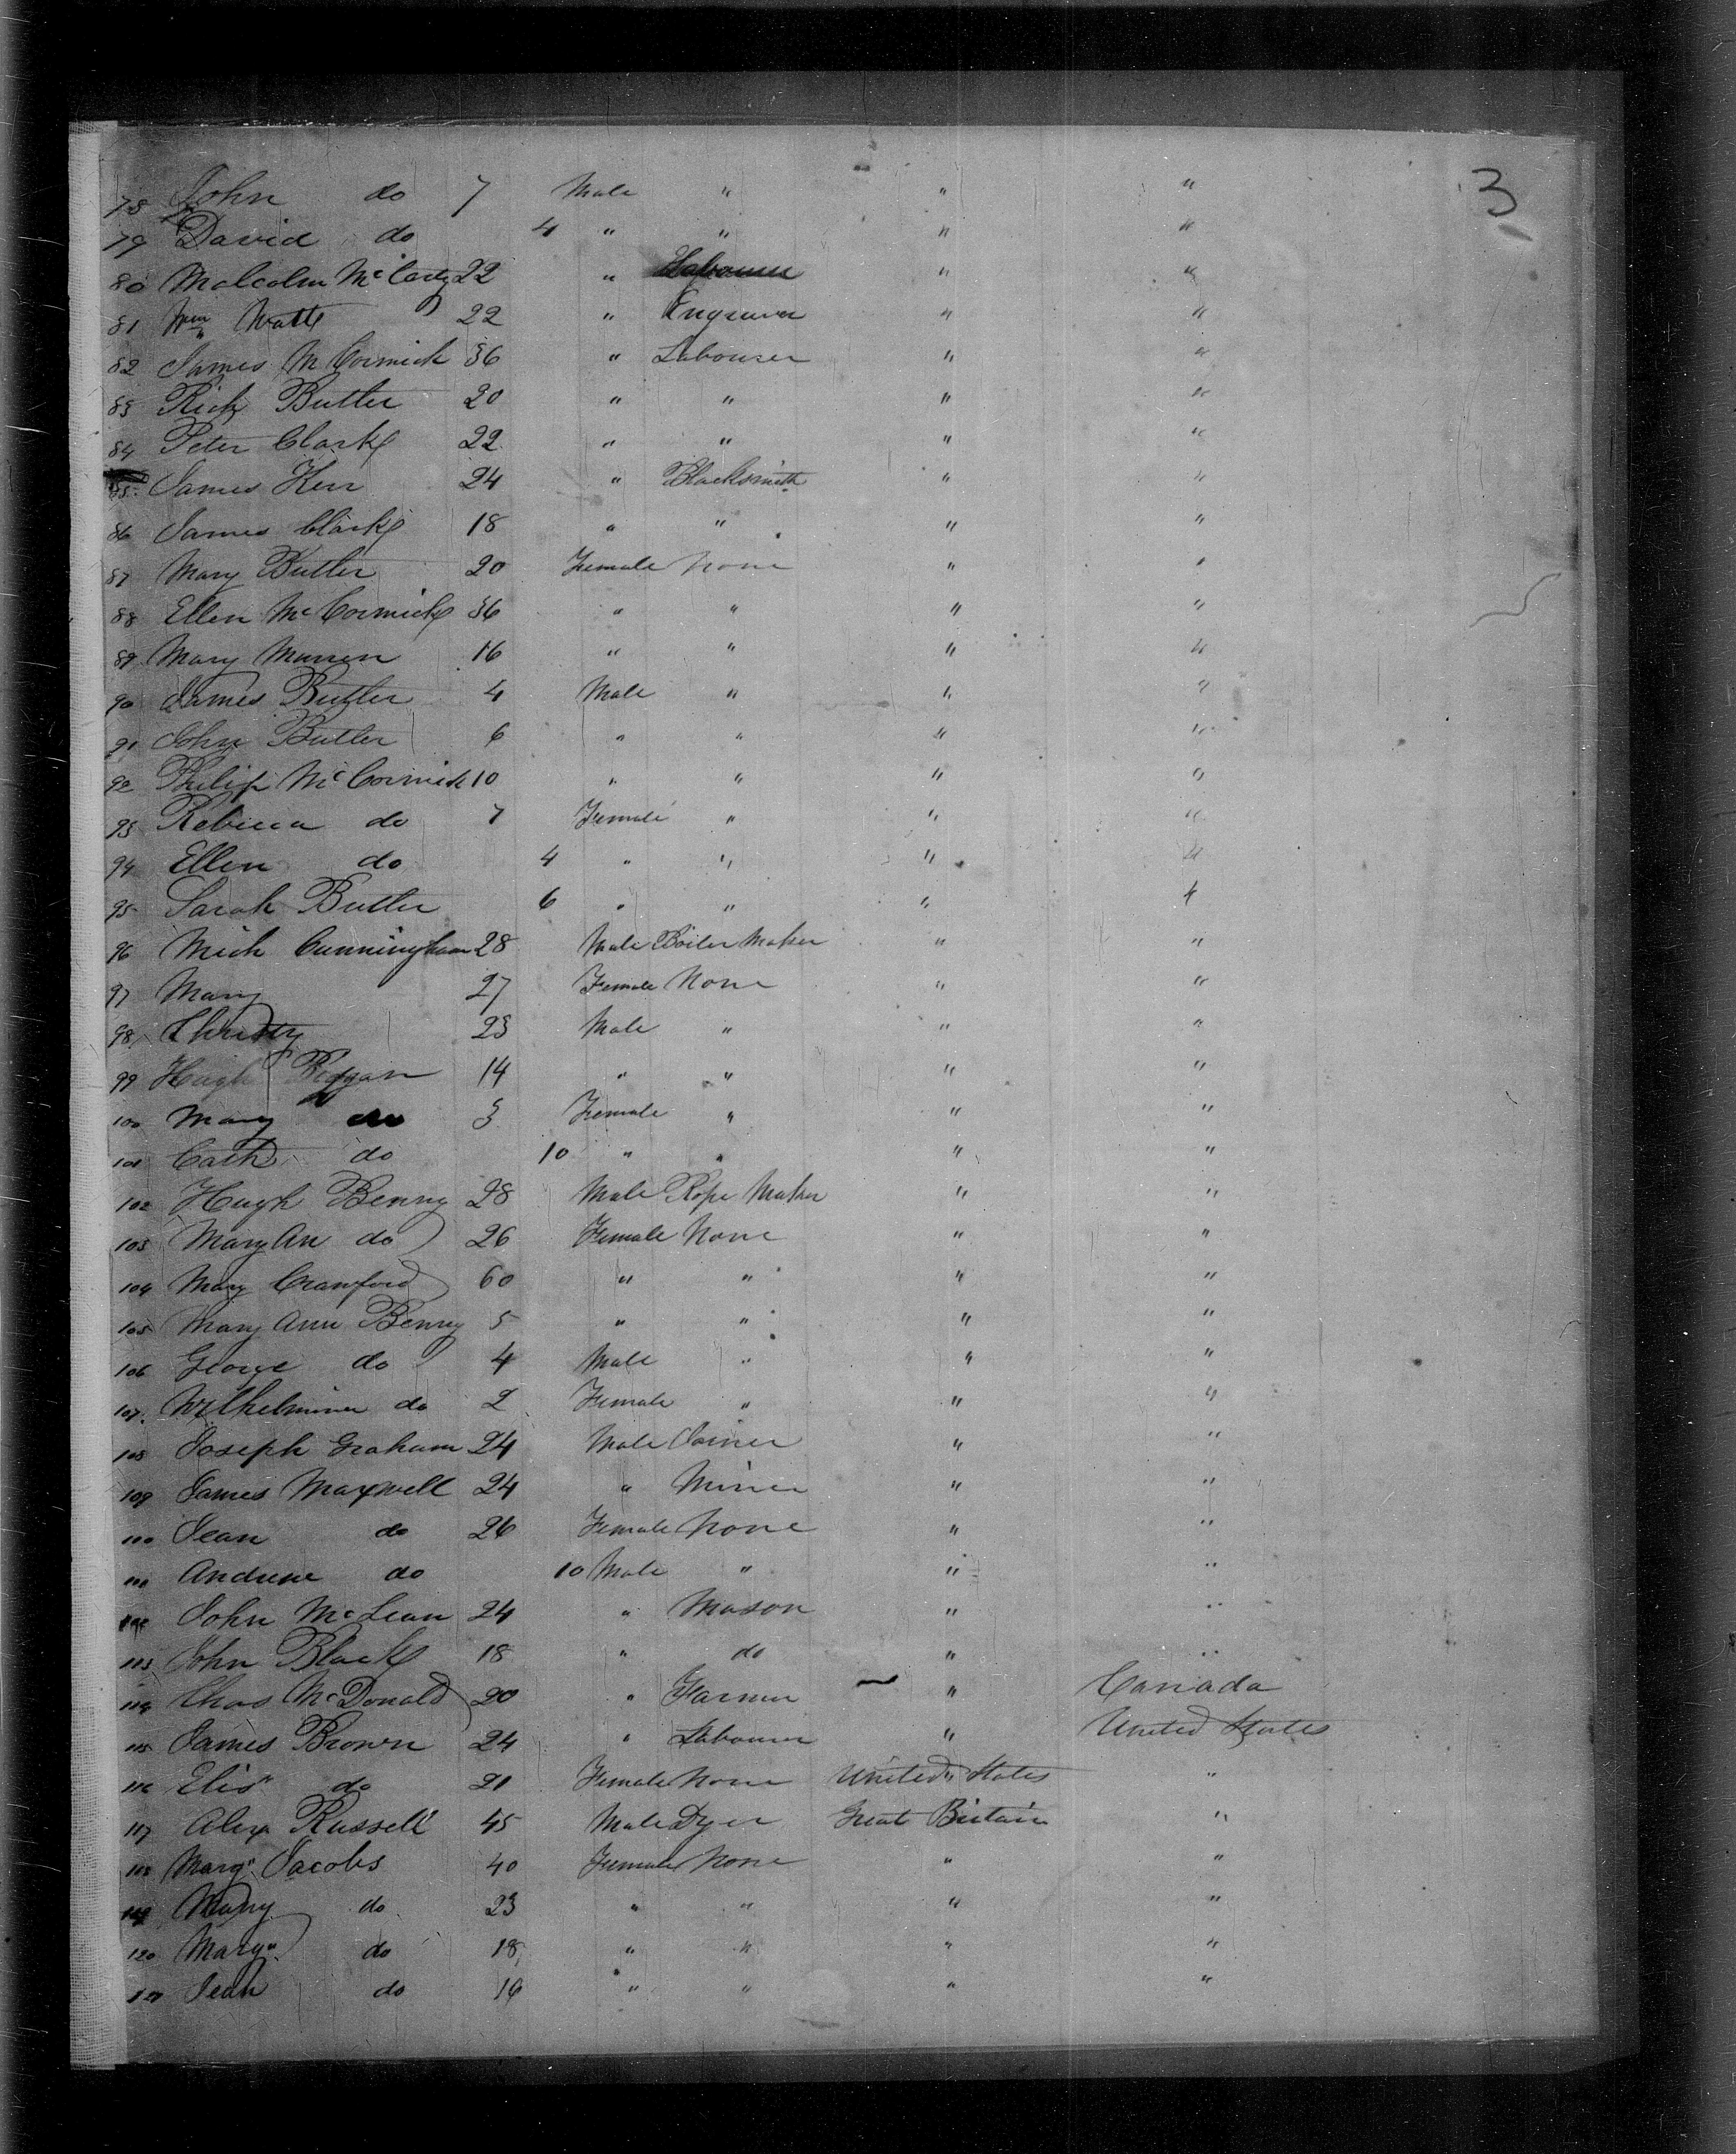 3
78 John do 7 Male " " "
79 David do 4 " " " "
80 Malcolm McCarty 22 " Labourer " "
81 Wm Watt 22 " Engraver " "
82 James McCormick 36 " Labourer " "
83 Rich Butler 20 " " " "
84 Peter Clark 22 " " " "
85 James Kerr 24 " Blacksmith " "
86 James Clark 18 " " " "
87 Mary Butler 20 Female None " "
88 Ellen McCormick 36 " " " "
89 Mary Murren 16 " " " "
90 James Butler 4 Male " " "
91 John Butler 6 " " " "
92 Philip McCormick 10 " " " "
93 Rebecca do 7 Female " " "
94 Ellen do 4 " " " "
95 Sarah Butler 6 " " " "
96 Mich Cunningham 28 Male Boiler Maker " "
97 Mary 27 Female None " "
98 Christy 23 Male " " "
99 Hugh 14 " " " "
100 Mary do 3 Female " " "
101 Cath do 10 " " " "
102 Hugh Benny 28 Male Rope Maker " "
103 Mary An do 26 Female None " "
104 Mary Crawford 60 " " " "
105 Mary Ann Benny 5 " " " "
106 George do 4 Male " " "
107 Wilhelmina do 2 Female " " "
108 Joseph Graham 24 Male Joiner " "
109 James Maxwell 24 " Miner " "
110 Jean do 26 Female None " "
111 Andrew do 10 Male " " "
112 John McLean 24 " Mason " "
113 John Black 18 " do " "
114 Chas McDonald 20 " Farmer " Canada
115 James Brown 24 " Labourer " United States
116 Elis do 21 Female None United States "
117 Alex Russell 45 Male Dyer Great Britain "
118 Marg Jacobs 40 Female None " "
119 Mary do 23 " " " "
120 Marg do 18 " " " "
121 Jean do 16 " " " "